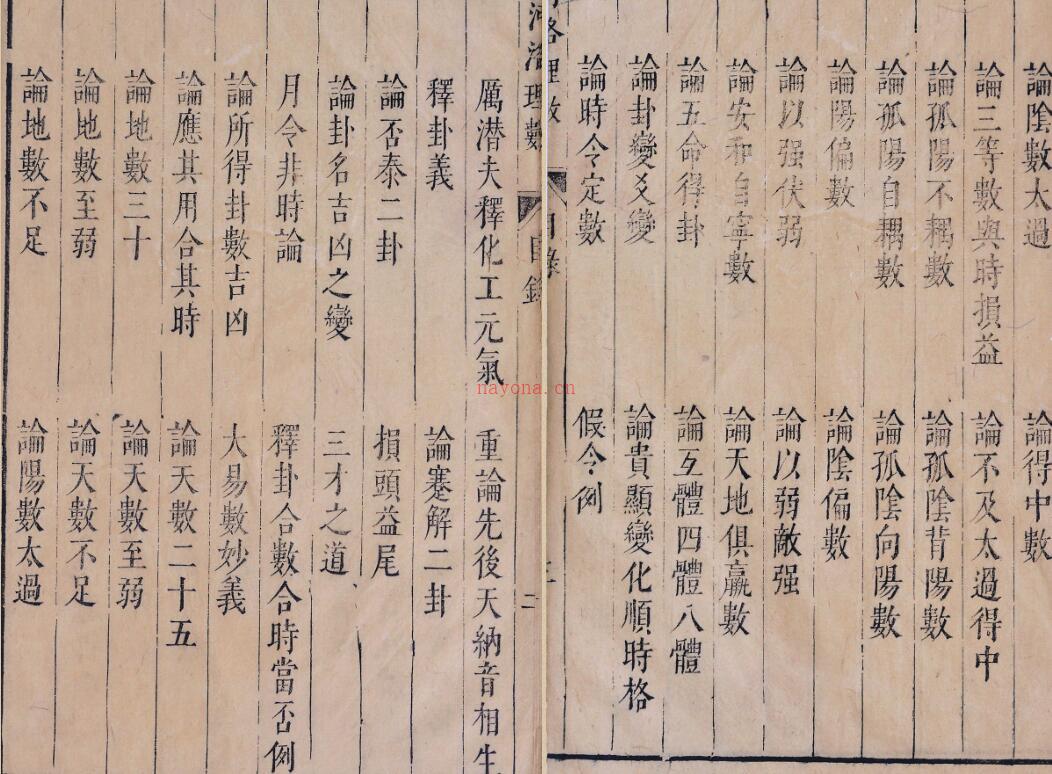 論陰數太過 論得中數
論三等數與時損益 論不及太過得中
論孤陽不耦數 論孤陰背陽數
論孤陽自耦數 論孤陰向陽數
論陽偏數 論陰偏數
論以强伏弱 論以弱敵强
論安和自寧數 論天地俱贏數
論五命得卦 論互體四體八體
論卦變爻變 論貴顯變化順時格
論時令定數 假令例
洛理數 目錄
河洛理數 目錄 二
厲潜夫釋化工元氣 重論先後天納音相生
釋卦義 論蹇解二卦
論否泰二卦 損頭益尾
論卦名吉凶之變 三才之道
月令非時論 釋卦合數合時當否例
論所得卦數吉凶 大易數妙義
論應其用合其時 論天數二十五
論地數三十 論天數至弱
論地數至弱 論天數不足
論地數不足 論陽數太過
nayona.cn